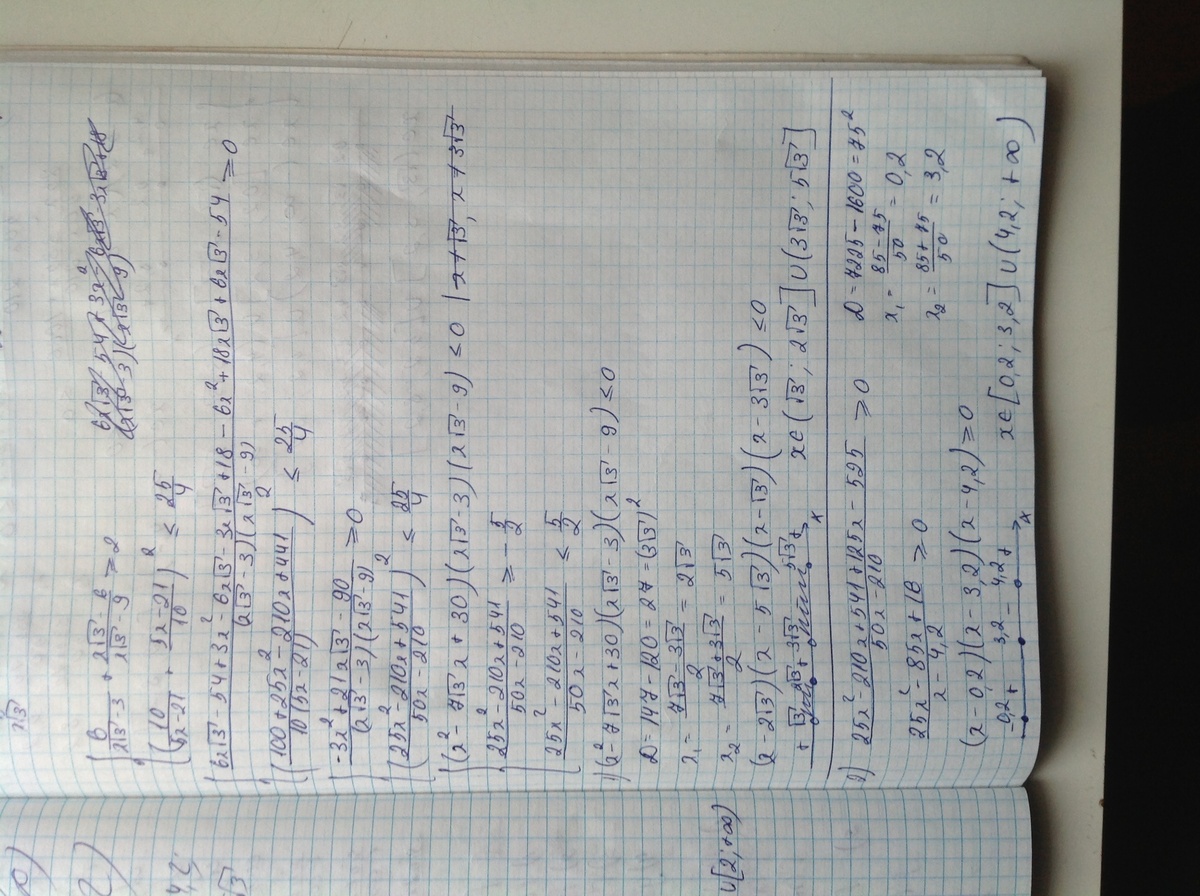 x√3
{ 6/(x√3-3) + (x√3-6)/(x√3-9) ≥ 2
(10/(5x-21) + (5x-21)/10)² ≤ 25/4
{ (6x√3-54+3x²-6x√3-3x√3+18-6x²+18x√3+6x√3-54)/((x√3-3)(x√3-9)) ≥ 0
((100+25x²-210x+441)/(10(5x-21)))² ≤ 25/4
{ (-3x²+21x√3-90)/((x√3-3)(x√3-9)) ≥ 0
((25x²-210x+541)/(50x-210))² ≤ 25/4
{ (x²-7√3x+30)(x√3-3)(x√3-9) ≤ 0 | x≠√3, x≠3√3
(25x²-210x+541)/(50x-210) ≥ -5/2
(25x²-210x+541)/(50x-210) ≤ 5/2
1) (x²-7√3x+30)(x√3-3)(x√3-9) ≤ 0
D=147-120=27=(3√3)²
x₁= (7√3-3√3)/2 = 2√3
x₂= (7√3+3√3)/2 = 5√3
(x-2√3)(x-5√3)(x-√3)(x-3√3) ≤ 0
+ √3 2√3 + 3√3 5√3 + x
x∈(√3; 2√3]∪(3√3; 5√3]
2) (25x²-210x+541+125x-525)/(50x-210) ≥ 0
D=7225-1600=75²
x₁= (85-75)/50 = 0,2
(25x²-85x+16)/(x-4,2) ≥ 0
x₂= (85+75)/50 = 3,2
(x-0,2)(x-3,2)(x-4,2) ≥ 0
- 0,2 + 3,2 - 4,2 + x
x∈[0,2; 3,2]∪(4,2; +∞)
∪[2; +∞)